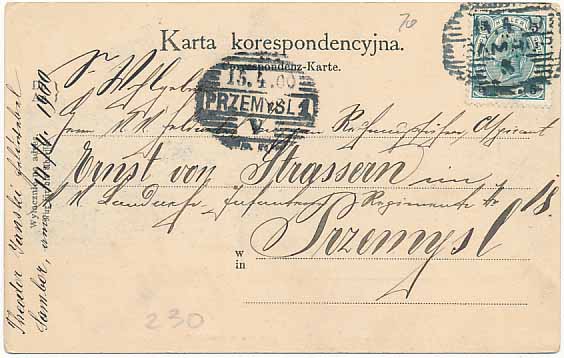 70
Karta korespondencyjna.
Correspondenz-Karte.
15.4.00
PRZEMYŚL 1
V
Sr Wohlgeboren
Herrn
Rechnungsführer Aspirant
Ernst von Strassern im
K K Landwehr Infanterie Regimente No 18.
w
in
Przemysl
230
Theodor
Sambor, am 1900